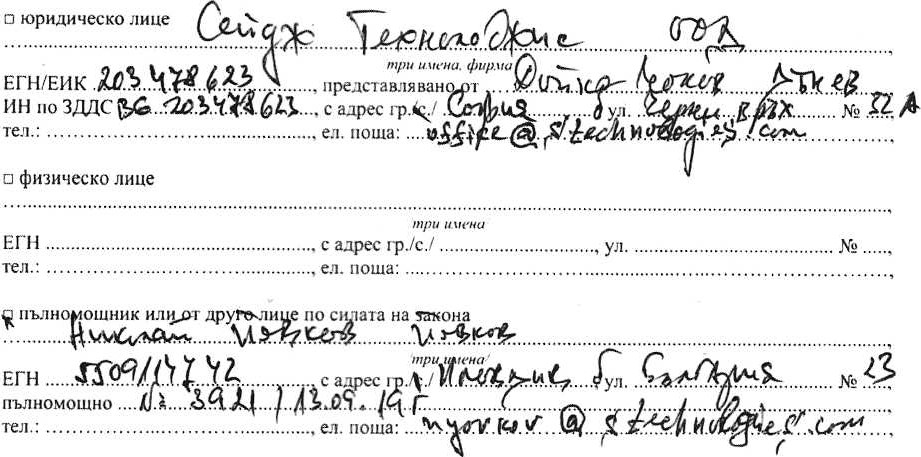 □ юридическо лице Сейдж Технолоджис ООД
три имена, фирма
ЕГН/ЕИК 203478623, представлявано от Дойко Цонев
ИН по ЗДДС BG 203478623, с адрес гр./с./ София бул. Черни връх № 32 А
тел.: , ел. поща: office@stechnologies.com
□ физическо лице
три имена
ЕГН , с адрес гр./с./ , ул. № ,
тел.: , ел. поща: ,
□ пълномощник или от друго лице по силата на закона
Николай Йовков Йовков
три имена
ЕГН , с адрес гр./с./ Пловдив бул. България № 23
пълномощно № 3921 / 13.09.19г
тел.: , ел. поща: nyovkov@stechnologies.com,